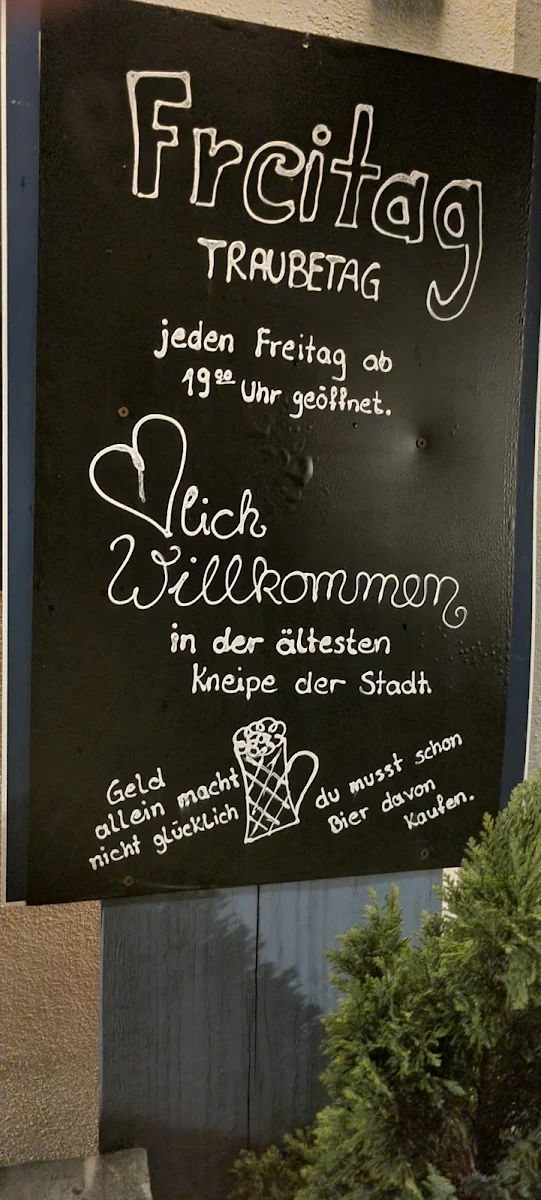 Freitag
TRAUBETAG
jeden Freitag ab
19⁰⁰ Uhr geöffnet.
lich
Willkommen
in der ältesten
Kneipe der Stadt
Geld
allein macht
nicht glücklich
du musst schon
Bier davon
kaufen.